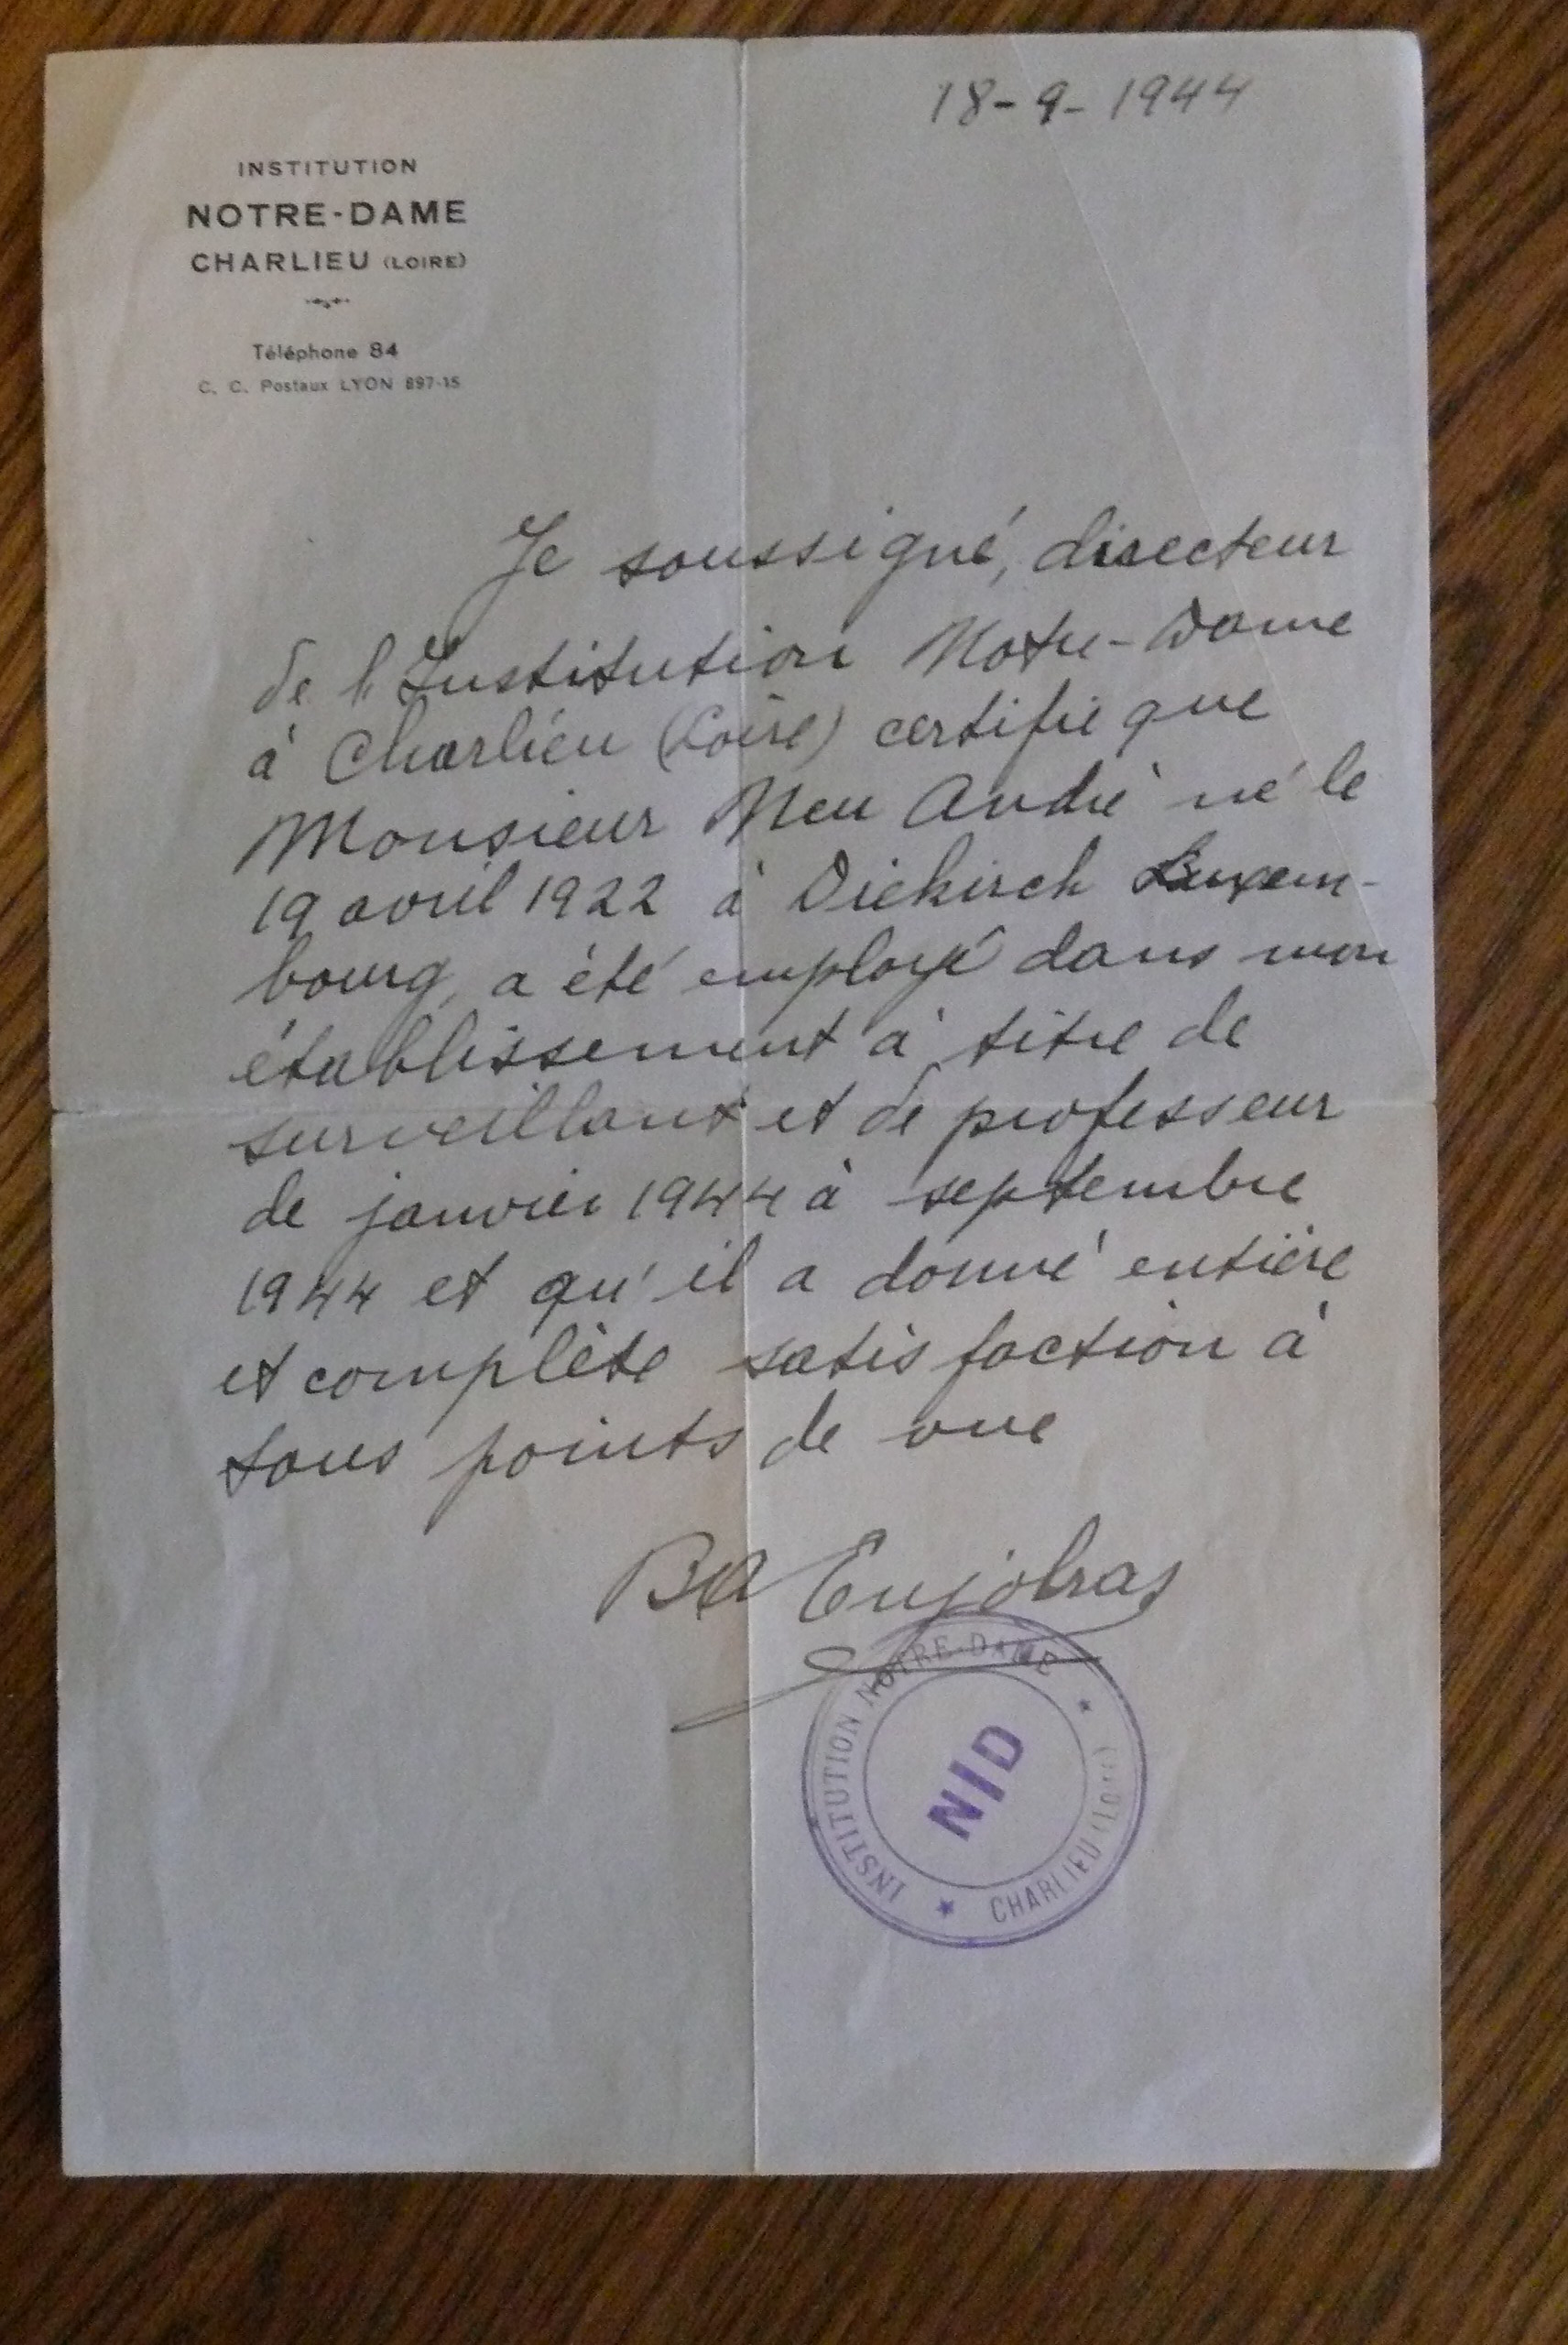 18-9-1944
INSTITUTION
NOTRE-DAME
CHARLIEU (LOIRE)
Téléphone 84
C. C. Postaux LYON 897-15
Je soussigné, directeur
de l'Institution Notre-Dame
à Charlieu (Loire) certifie que
Monsieur Neu André né le
19 avril 1922 à Diekirch Luxem-
bourg, a été employé dans mon
établissement à titre de
surveillant et de professeur
de janvier 1944 à septembre
1944 et qu'il a donné entière
et complète satisfaction à
tous points de vue
Enjolras
INSTITUTION NOTRE-DAME
CHARLIEU (Loire)
N/D